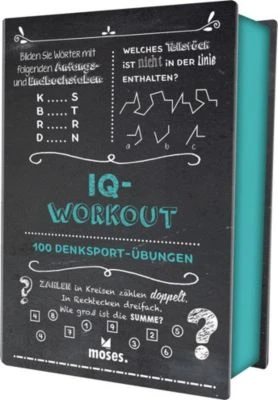 Bilden Sie Wörter mit
folgenden Anfangs-
und Endbuchstaben:
K ..... S
B ..... T
R ..... R
D ..... N
WELCHES Teilstück
iST nicht iN DER LiNiE
ENTHALTEN?
a b c
IQ-
WORKOUT
100 DENKSPORT-ÜBUNGEN
ZAHLEN in Kreisen zählen doppelt.
In Rechtecken dreifach.
Wie groß ist die SUMME?
?
?
moses.